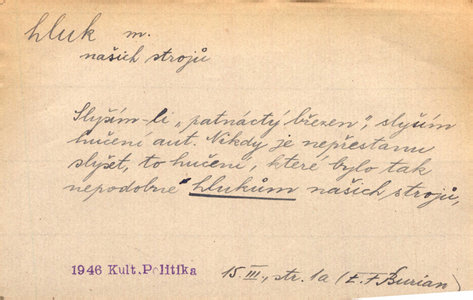 hluk m.
našich strojů
Slyším-li „patnáctý březen“, slyším
hučení aut. Nikdy je nepřestanu
slyšet, to hučení, které bylo tak
nepodobné hlukům našich strojů,
1946 Kult.Politika
15. III., str. 1a (E. F. Burian)